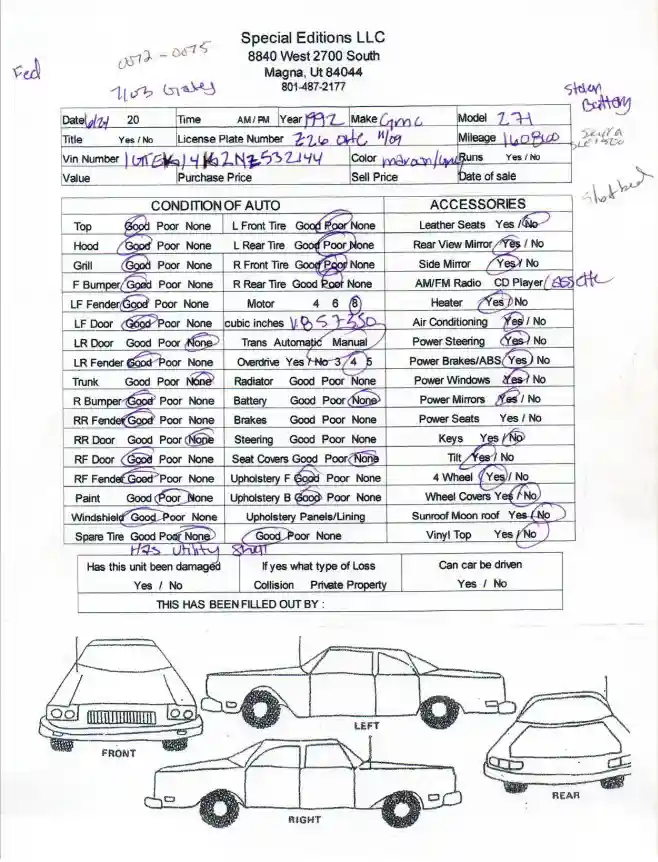 Special Editions LLC
8840 West 2700 South
Magna, Ut 84044
801-487-2177
Fed
0072-0075
Stolen
Battery
Date 6/24 20 Time AM / PM Year 1992 Make Gmc Model Z71
Title Yes / No License Plate Number 226 OHC 11/09 Mileage 160860
Vin Number Color maroon/ Runs Yes / No
Value Purchase Price Sell Price Date of sale
Short bed
CONDITION OF AUTO ACCESSORIES
Top Good Poor None L Front Tire Good Poor None Leather Seats Yes / No
Hood Good Poor None L Rear Tire Good Poor None Rear View Mirror Yes / No
Grill Good Poor None R Front Tire Good Poor None Side Mirror Yes / No
F Bumper Good Poor None R Rear Tire Good Poor None AM/FM Radio CD Player
LF Fender Good Poor None Motor 4 6 8 Heater Yes / No
LF Door Good Poor None cubic inches V8 5.7 350 Air Conditioning Yes / No
LR Door Good Poor None Trans Automatic Manual Power Steering Yes / No
LR Fender Good Poor None Overdrive Yes / No 3 4 5 Power Brakes/ABS Yes / No
Trunk Good Poor None Radiator Good Poor None Power Windows Yes / No
R Bumper Good Poor None Battery Good Poor None Power Mirrors Yes / No
RR Fender Good Poor None Brakes Good Poor None Power Seats Yes / No
RR Door Good Poor None Steering Good Poor None Keys Yes / No
RF Door Good Poor None Seat Covers Good Poor None Tilt Yes / No
RF Fender Good Poor None Upholstery F Good Poor None 4 Wheel Yes / No
Paint Good Poor None Upholstery B Good Poor None Wheel Covers Yes / No
Windshield Good Poor None Upholstery Panels/Lining Sunroof Moon roof Yes / No
Spare Tire Good Poor None Good Poor None Vinyl Top Yes / No
HAS Utility Shell
Has this unit been damaged If yes what type of Loss Can car be driven
Yes / No Collision Private Property Yes / No
THIS HAS BEEN FILLED OUT BY :
FRONT
LEFT
RIGHT
REAR